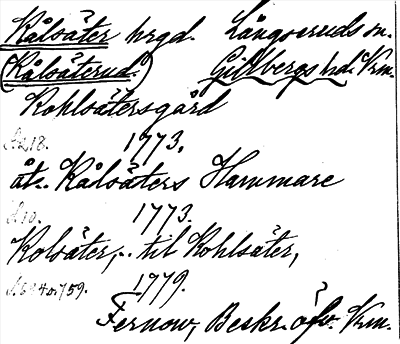 Kålsäter hrgd. Långseruds sn.
(Kålsäterud.) Gillbergs hd. Vrm.
Kohlsätersgård
S. 218. 1773.
åt.. Kålsäters Hammare
S. 10. 1773.
Kolsäter,.. til Kohlsäter,
S. 684 o. 759. 1779.
Fernow, Beskr. öfv. Vrm.